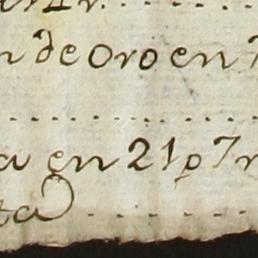 n de oro en 7
a en 21 p 7 r
ta